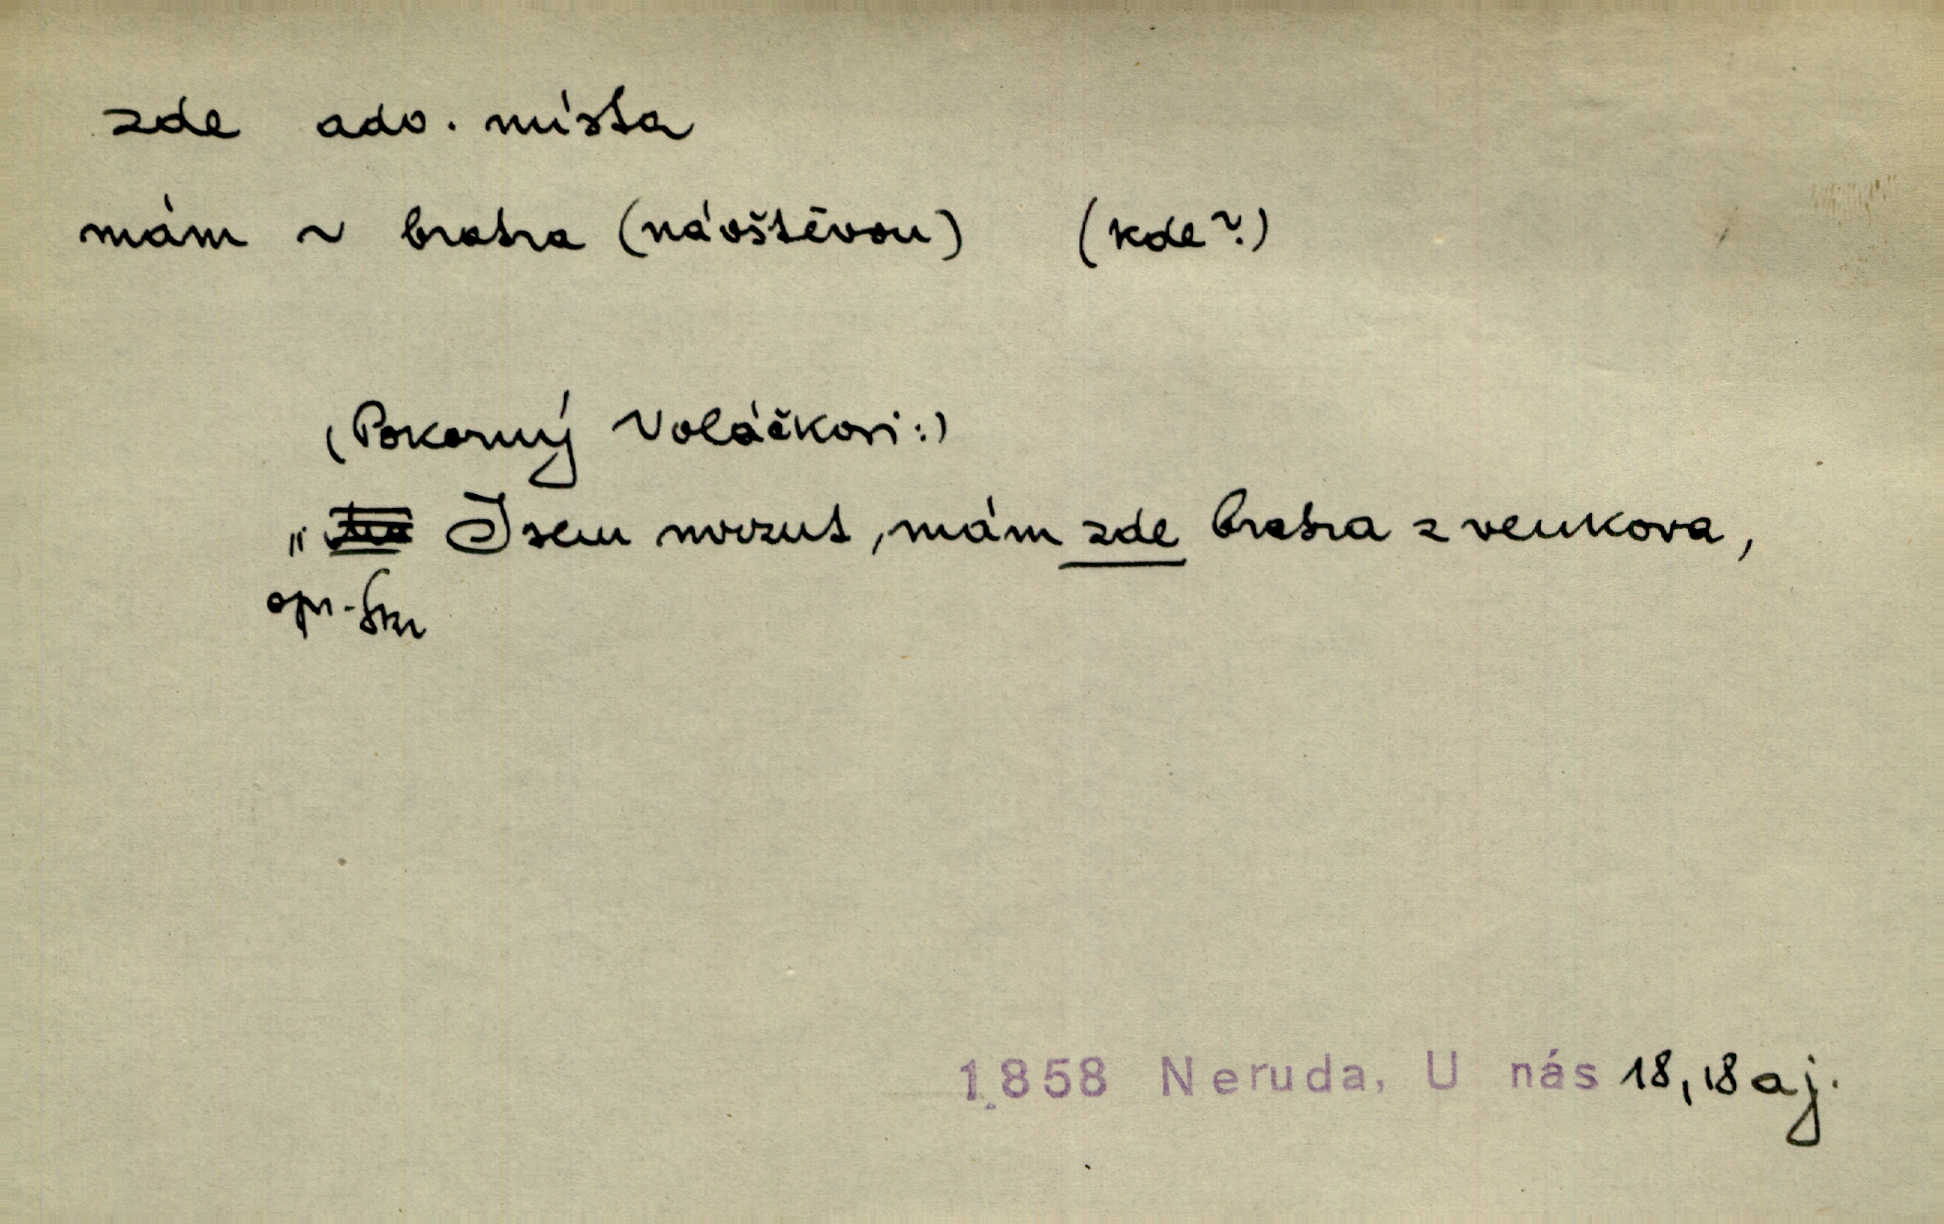 zde adv. místa
mám ~ bratra (návštěvou) (kde?)
(Pokorný Voláčkovi:)
„ Jsem mrzut, mám zde bratra z venkova,
opr. Škr
1858 Neruda, U nás 18, 18 aj.